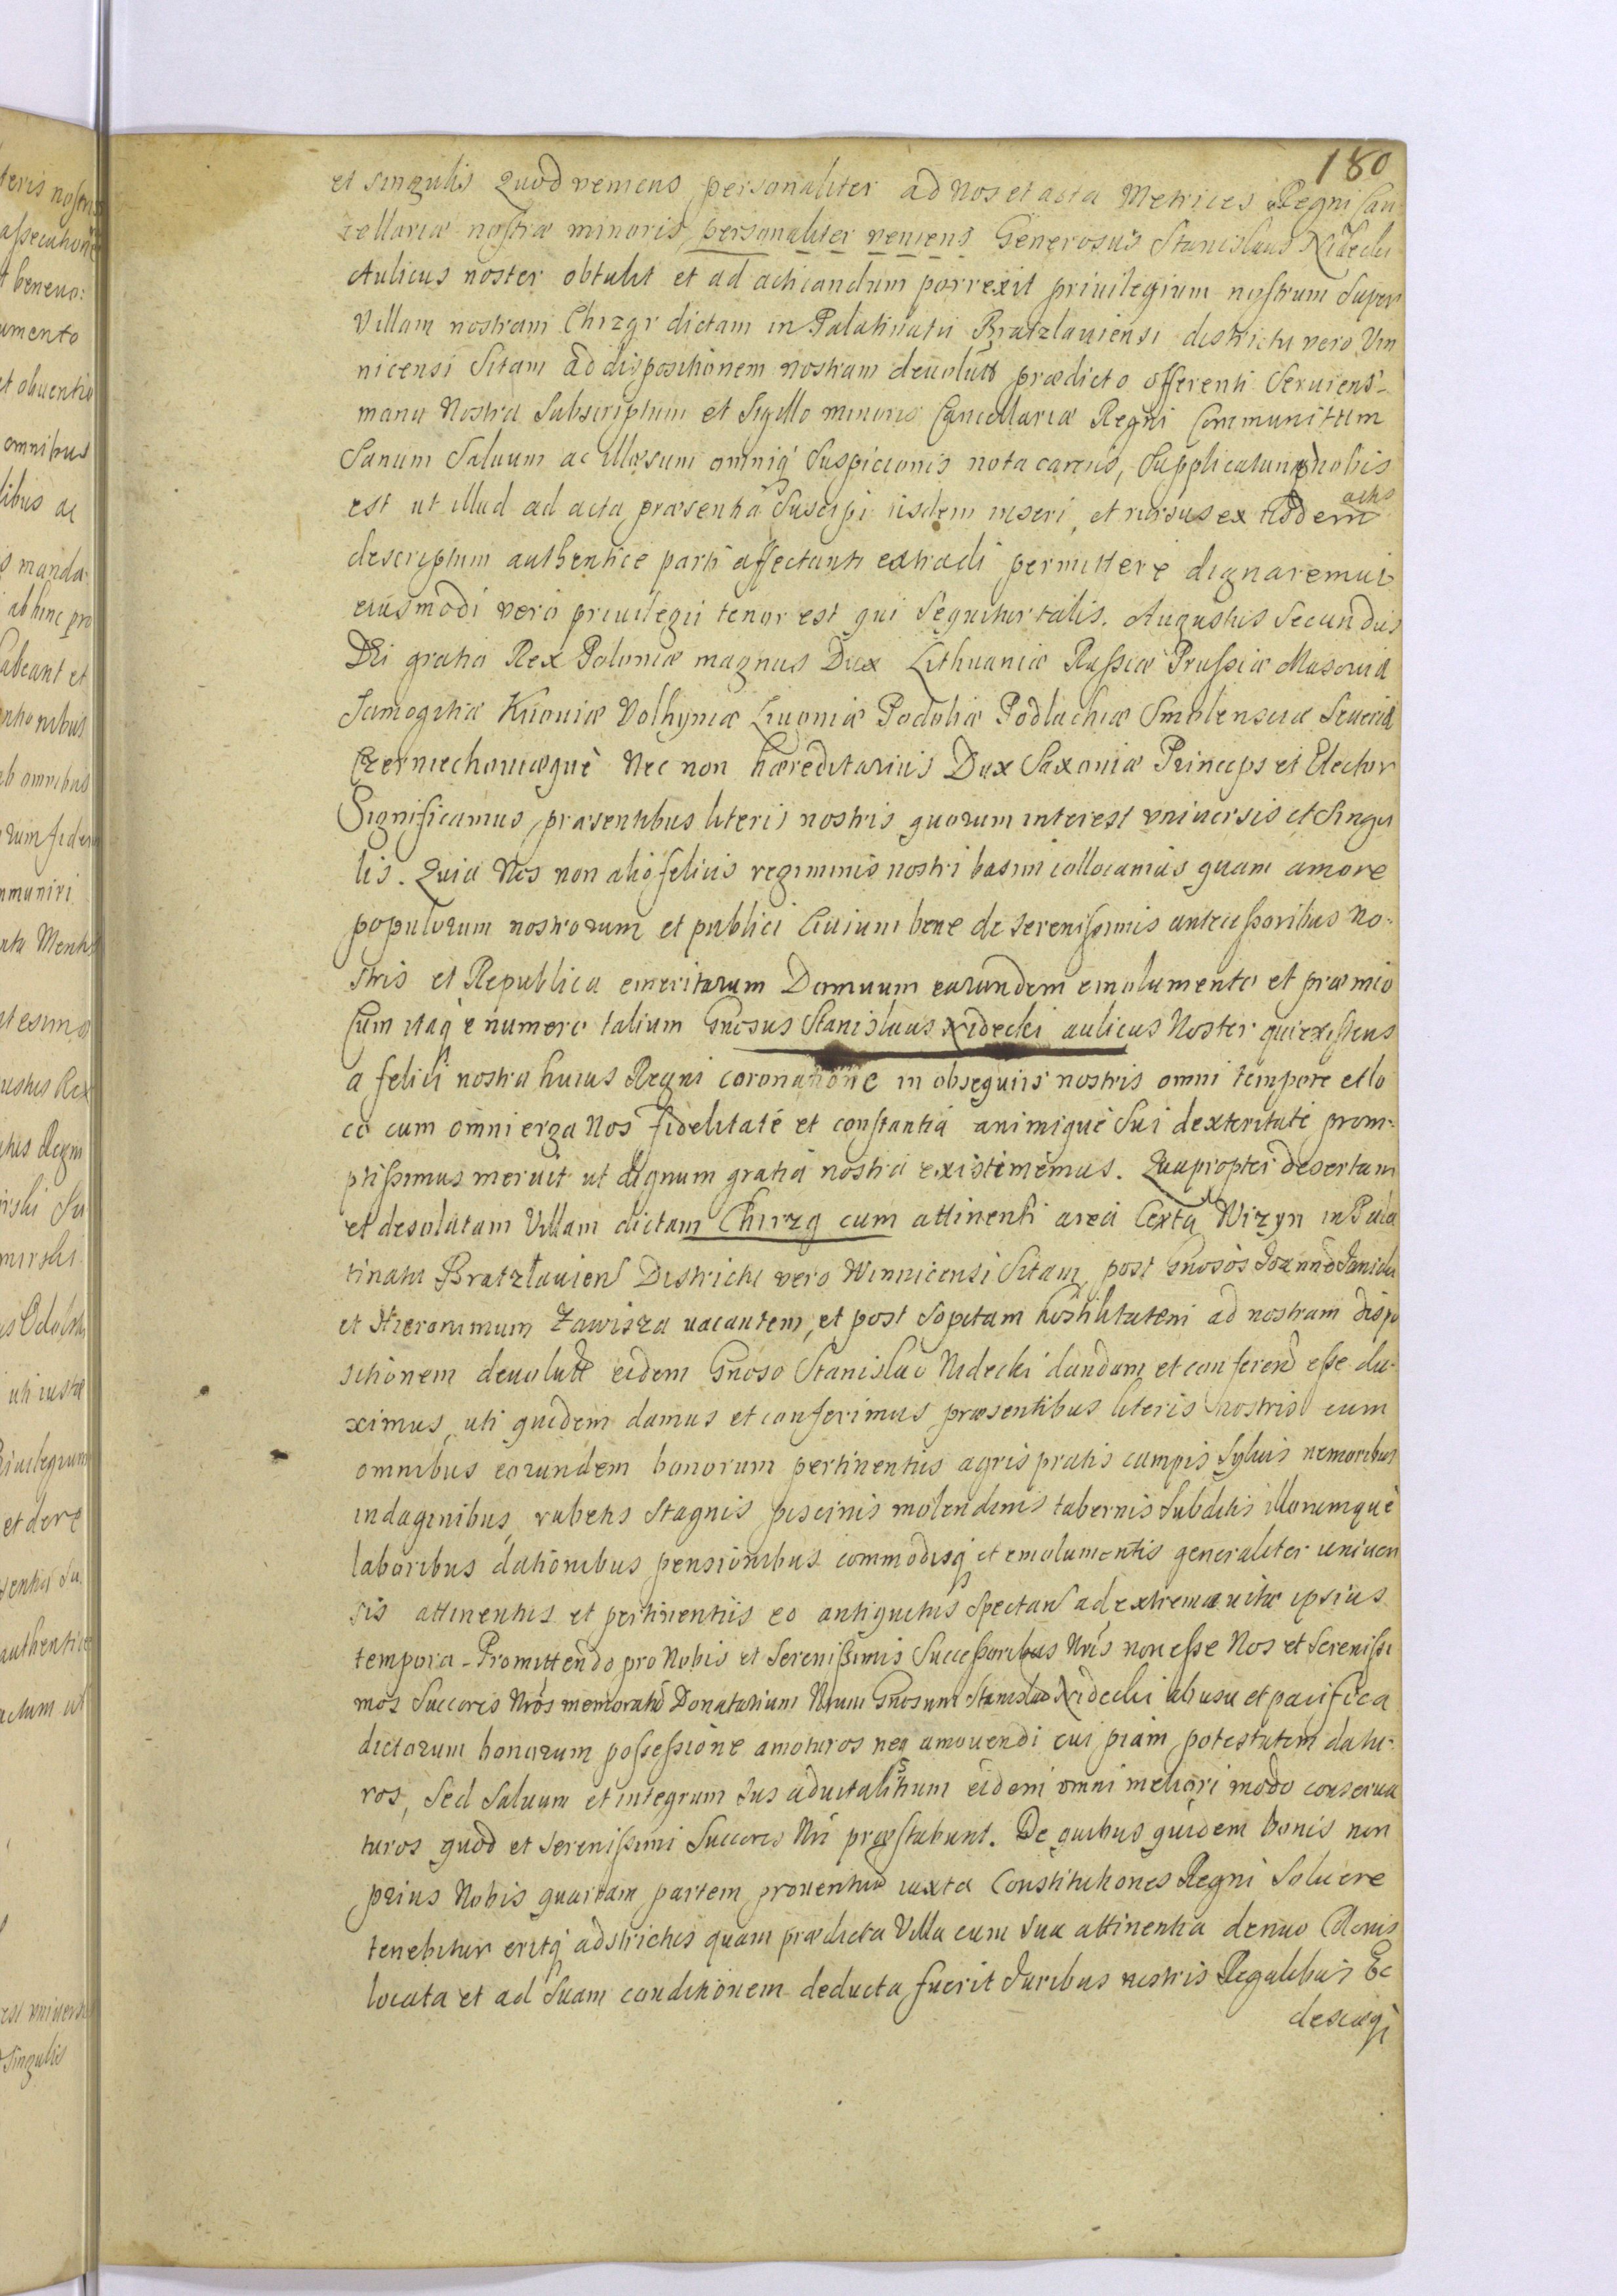 180
et singulis Quod veniens personaliter ad Nos et acta Metrices Regni Can
cellariæ nostræ minoris, personaliter veniens Generosus Stanislaus Nidecki
Aulicus noster obtulit et ad acticandum porrexit priuilegium nostrum super
Villam nostram Chrzgr dictam in Palatinatu Bratzlauiensi districtu vero Vin
nicensi Sitam ad dispositionem nostram deuolut prædicto offerenti Seruiens
manu Nostra Subscriptum et Sigillo minoris Cancellariæ Regni Communitum
Sanum Saluum ac illæsum omniq Suspicionis nota carens, Supplicatumq nobis
est ut illud ad acta præsentia Suscipi iisdem inseri, et rursus ex iisdem actis
descriptum authentice parti affectanti extradi permittere dignaremur
eiusmodi vero priuilegii tenor est qui Sequitur talis. Augustus Secundus
Dei gratia Rex Poloniæ magnus Dux Lithuaniæ Russiæ Prussiæ Masouiæ
Samogitiæ Kiiouiæ Volhyniæ Liuoniæ Podoliæ Podlachiæ Smolensciæ Seueriæ
Czerniechouiæquè Nec non hæreditarius Dux Saxoniæ Princeps et Elector
Significamus præsentibus literis nostris quorum interest vniuersis et Singu
lis. Quia Nos non alio felicis regiminis nostri basim collocamus quam amore
populorum nostrorum et publici Ciuium bene de serenissimis antecessoribus No-
stris et Republica emeritorum Domuum earundem emolumento et præmio
Cum itaq e numero talium Gnosus Stanislaus Nidecki aulicus Noster qui existens
a felici nostra huius Regni coronatione in obsequiis nostris omni tempore et lo
co cum omni erga Nos fidelitate et constantia animique Sui dexteritate prom-
ptissimus meruit ut dignum gratia nostra existimemus. Quapropter desertam
et desolatam Villam dictam Chrzg cum attinenti area Wizyn in Pala
tinatu Bratzlauien Districtu vero Winnicensi Sitam, post Gnosos
et Hieronimum Zawisza vacantem, et post Sopitam hostilitatem ad nostram dispo
sitionem deuolut eidem Gnoso Stanislao Nidecki dandam et conferend esse du-
ximus, uti quidem damus et conferimus præsentibus literis nostris cum
omnibus eorundem bonorum pertinentiis agris pratis campis Syluis nemoribus
indaginibus, rubetis Stagnis piscinis molendinis tabernis Subditis illorumquè
laboribus dationibus pensionibus commodisq et emolumentis generaliter uniuer
sis attinentiis et pertinentiis eo antiquitus Spectan ad extrema vitæ ipsius
tempora - Promittendo pro Nobis et Serenissimis Successoribus Nris non esse Nos et Serenissi
mos Succores Nros memorat Donatarium Nrum Gnosum Stanislao Nidecki ab usu et pacifica
dictorum bonorum possessione amoturos neq amouendi cui piam potestatem datu-
ros, Sed Saluum et integrum Jus aduitalitium eidem omni meliori modo conserua
turos quod et Serenissimi Succores Nri præstabunt. De quibus quidem bonis non
prius Nobis quartam partem prouentuum iuxta Constitutiones Regni Soluere
tenebitur eritq adstrictus quam prædicta Villa cum sua attinentia denuo Colonis
locata et ad Suam conditionem deducta fuerit Juribus nostris Regalibus Ec
desiæqi